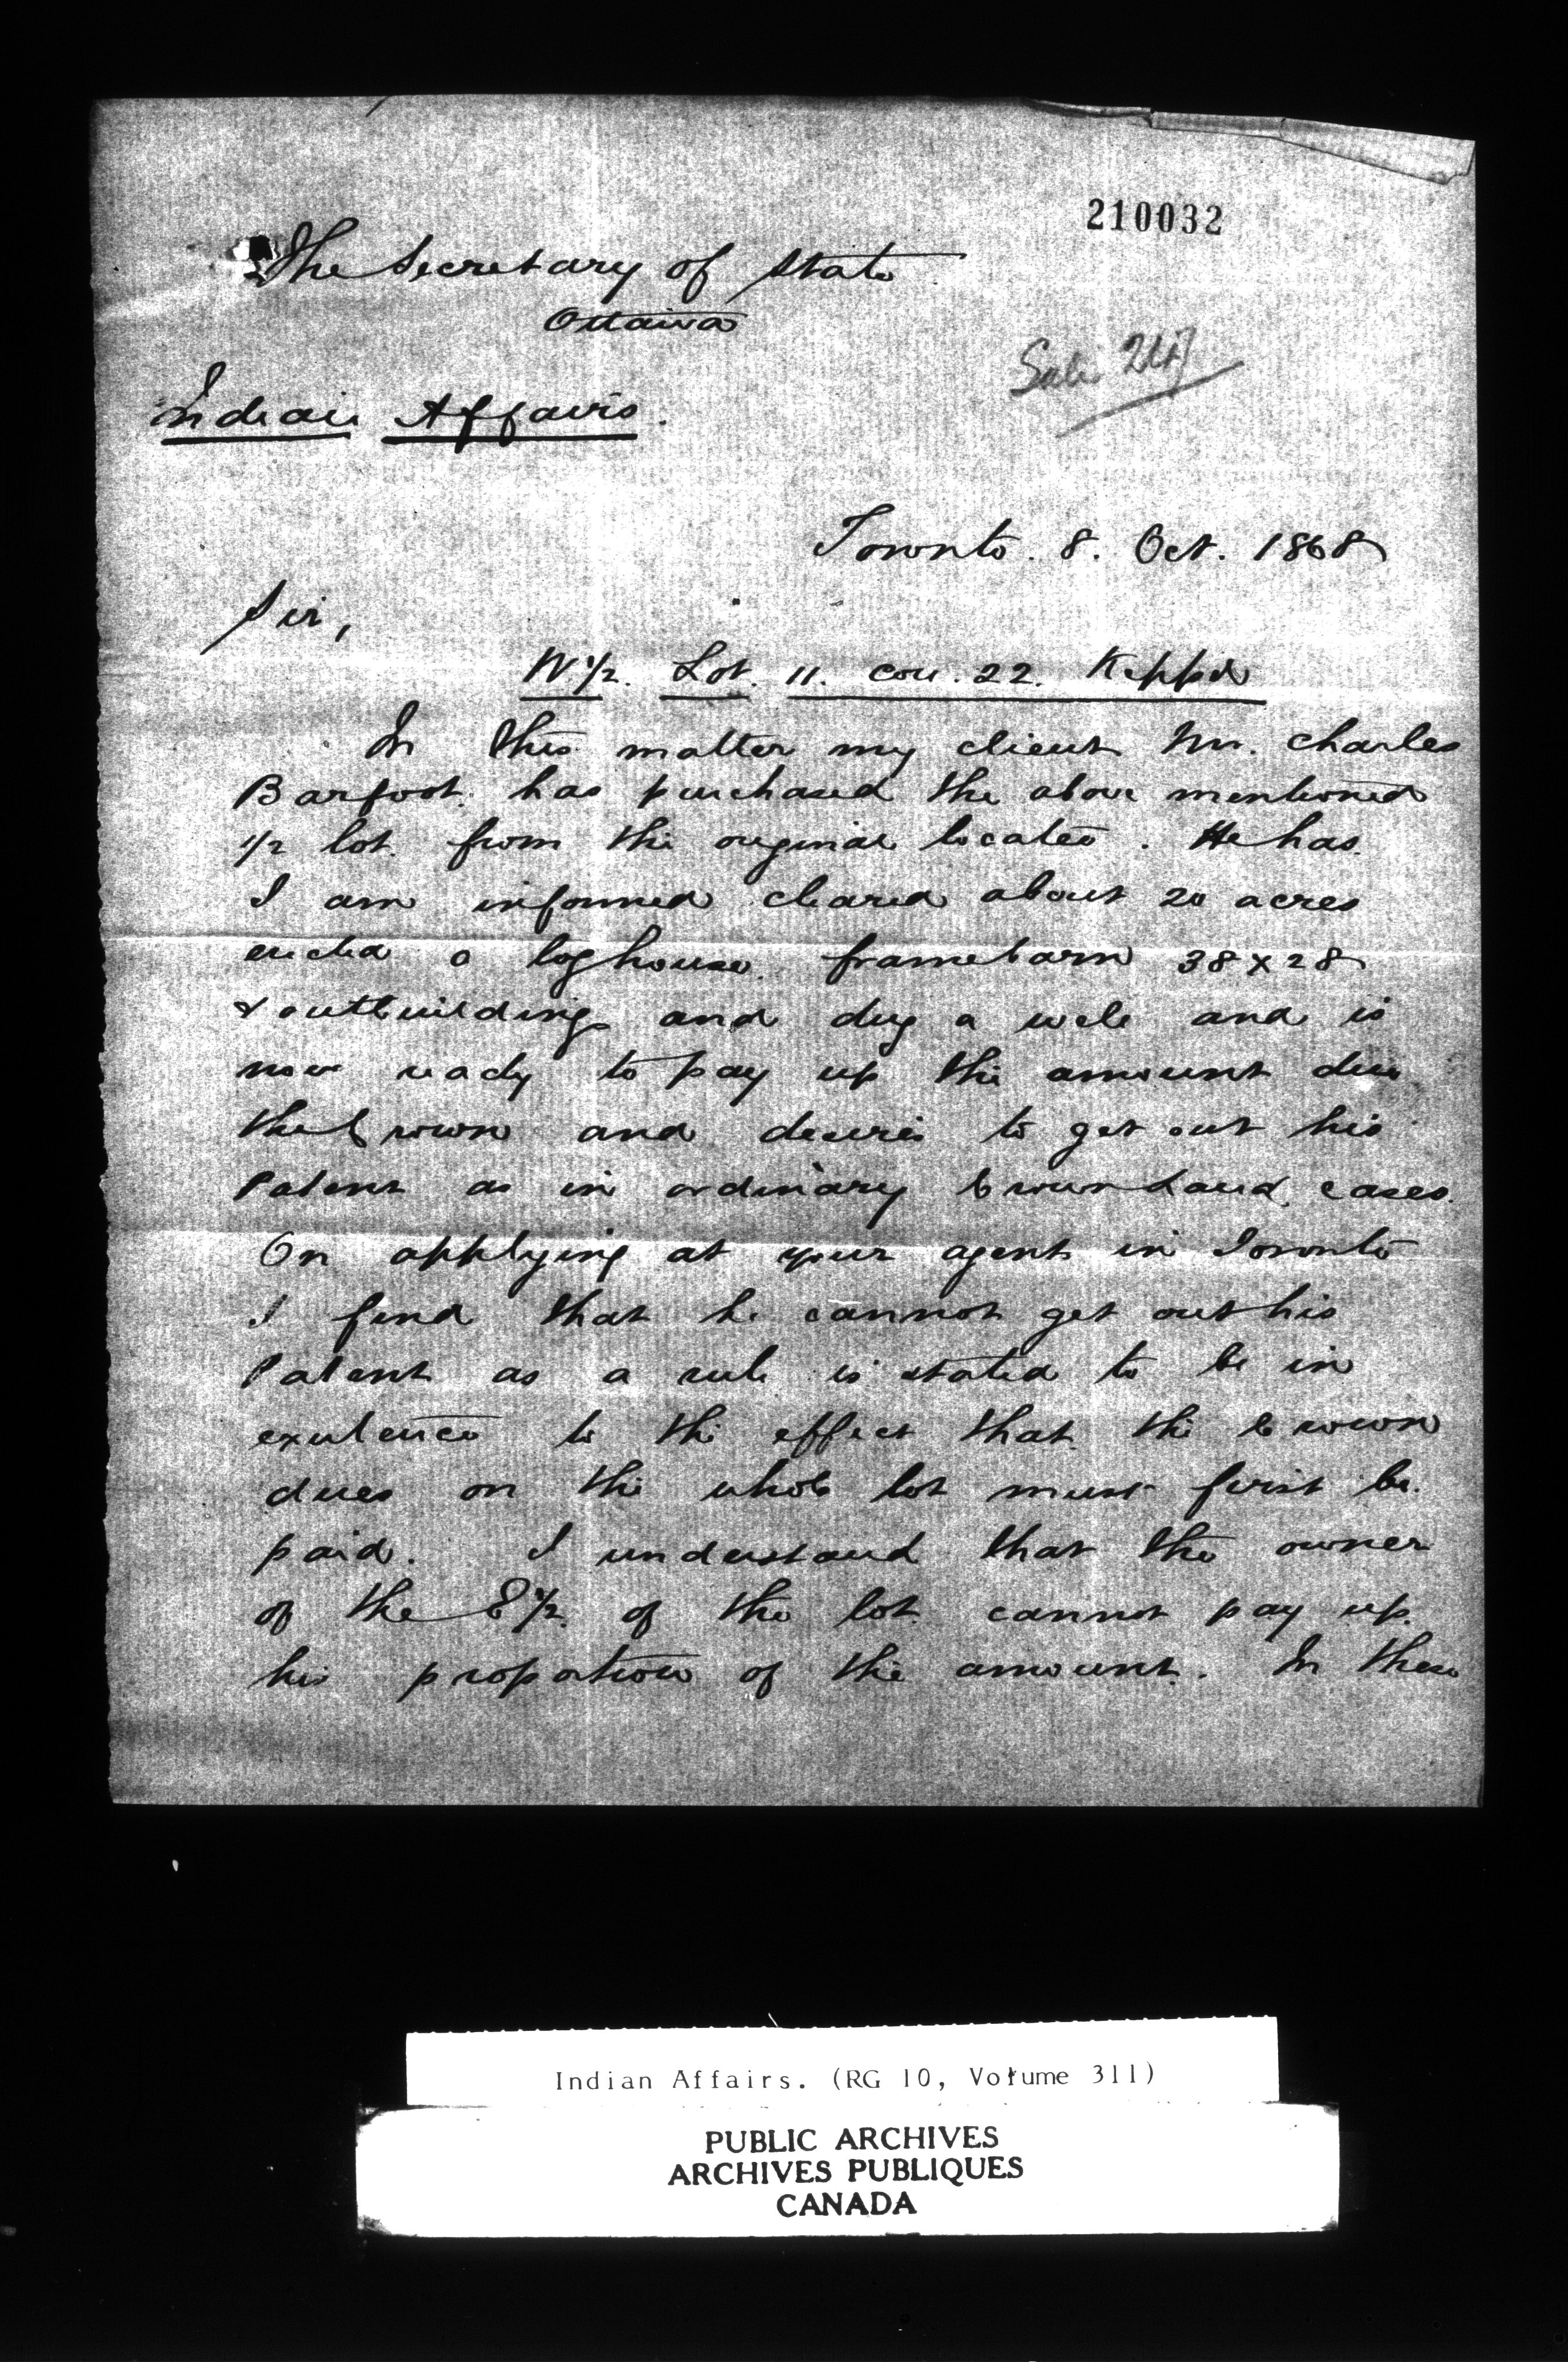 210032
The Secretary of State
Ottawa
Sale
Indian Affairs.
Toronto. 8. Oct. 1868
Sir,
W 1/2. Lot. 11. con. 22. Keppel
In this matter my client Mr. Charles
Barfoot. has purchased the above mentioned
1/2 lot from the original locatee. He has
I am informed cleared about 20 acres
erected a loghouse. framebarn 38 x 28
& outbuildings and dug a well and is
now ready to pay up the amount due
the Crown and desires to get out his
Patent as in ordinary Crown Land cases.
On applying at your agent in Toronto
I find that he cannot get out his
Patent as a rule is stated to be in
existence to the effect that the Crown
dues on the whole lot must first be
paid. I understand that the owner
of the E 1/2 of the lot cannot pay up
his proportion of the amount. In these
Indian Affairs. (RG 10, Volume 311)
PUBLIC ARCHIVES
ARCHIVES PUBLIQUES
CANADA